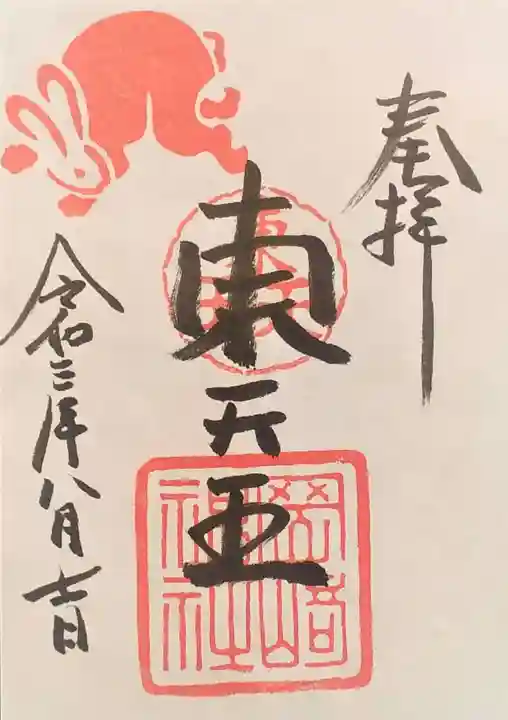 奉拝
東天王
岡崎
神社
令和三年八月七日